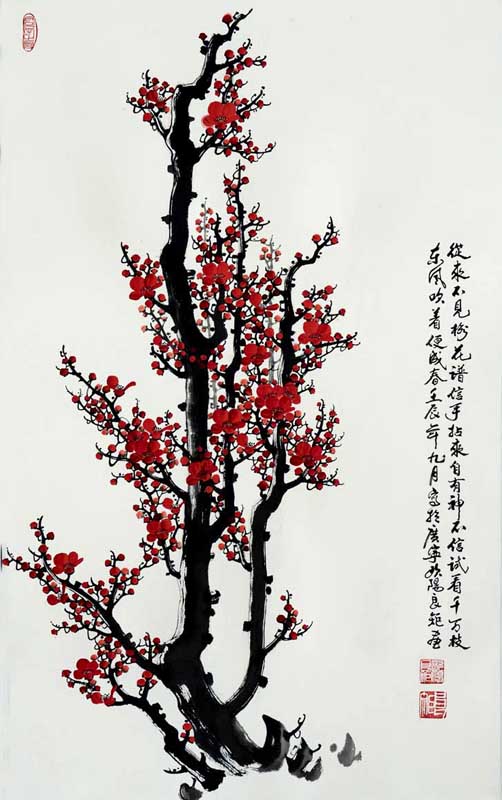 從來不見梅花譜信手拈來自有神不信試看千万枝
东风吹着便成春壬辰年九月寫於廣寧欧陽良鉅画